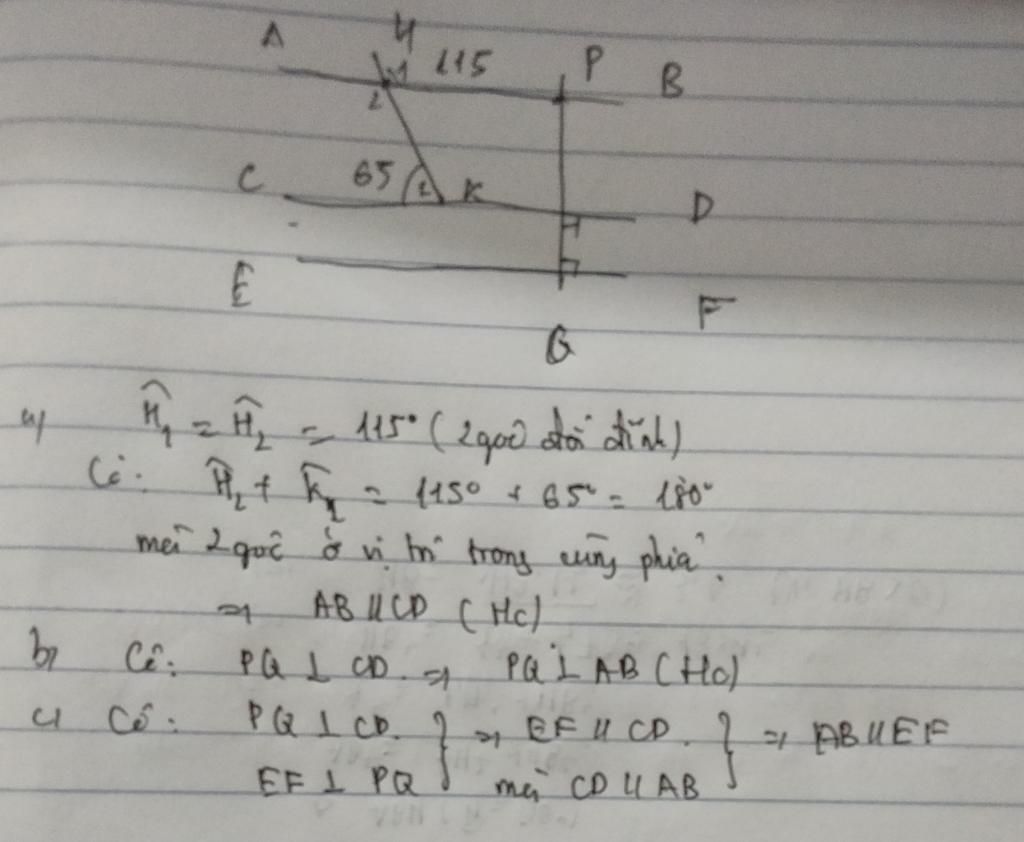 A H 115 P B
1
2
C 65 1 K D
E F
Q
a) Ĥ₁ = Ĥ₂ = 115° (2 góc đối đỉnh)
Có: Ĥ₂ + K̂₁ = 115° + 65° = 180°
mà 2 góc ở vị trí trong cùng phía.
=> AB // CD (Hc)
b) Có: PQ ⊥ CD. => PQ ⊥ AB (Hc)
c) Có: PQ ⊥ CD. } => EF // CD. } => AB // EF
EF ⊥ PQ mà CD // AB